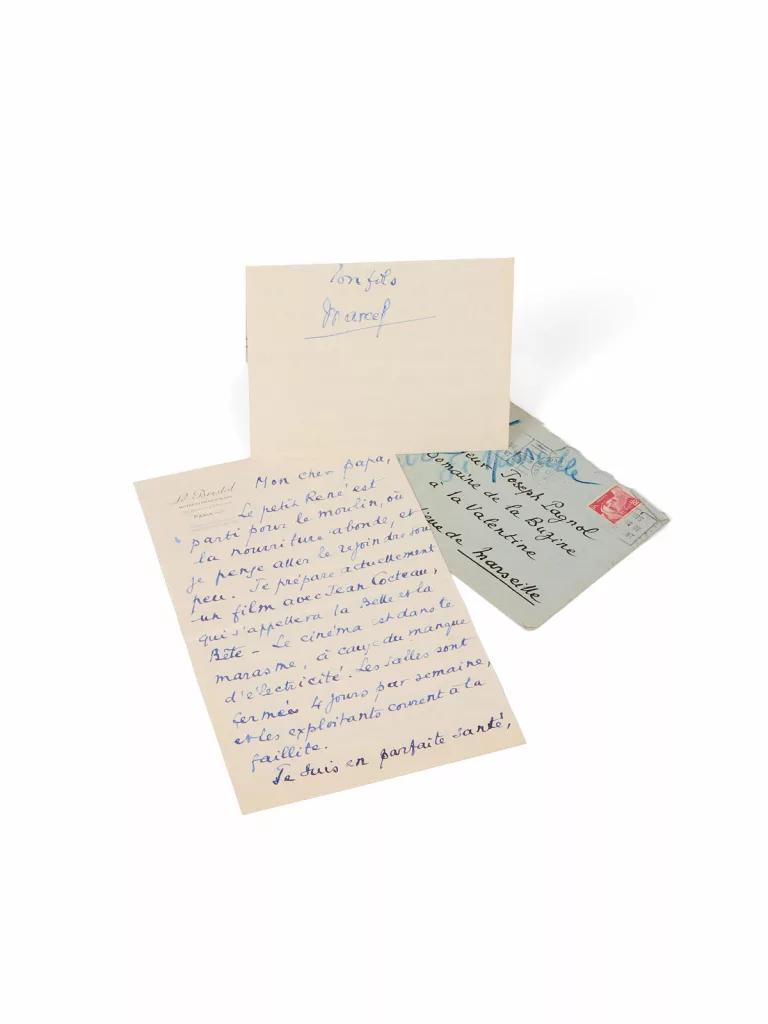 Ton fils
Marcel
Le Bristol
PARIS
Mon cher papa,
Le petit René est
parti pour le moulin, où
la nourriture abonde, et
je pense aller le rejoindre sous
peu. Je prépare actuellement
un film avec Jean Cocteau,
qui s'appellera la Belle et la
Bête – Le cinéma est dans le
marasme, à cause du manque
d'électricité. Les salles sont
fermées 4 jours par semaine,
et les exploitants courent à la
faillite.
Je suis en parfaite santé,
Marseille
eur Joseph Pagnol
Domaine de la Buzine
à la Valentine
lieue de Marseille